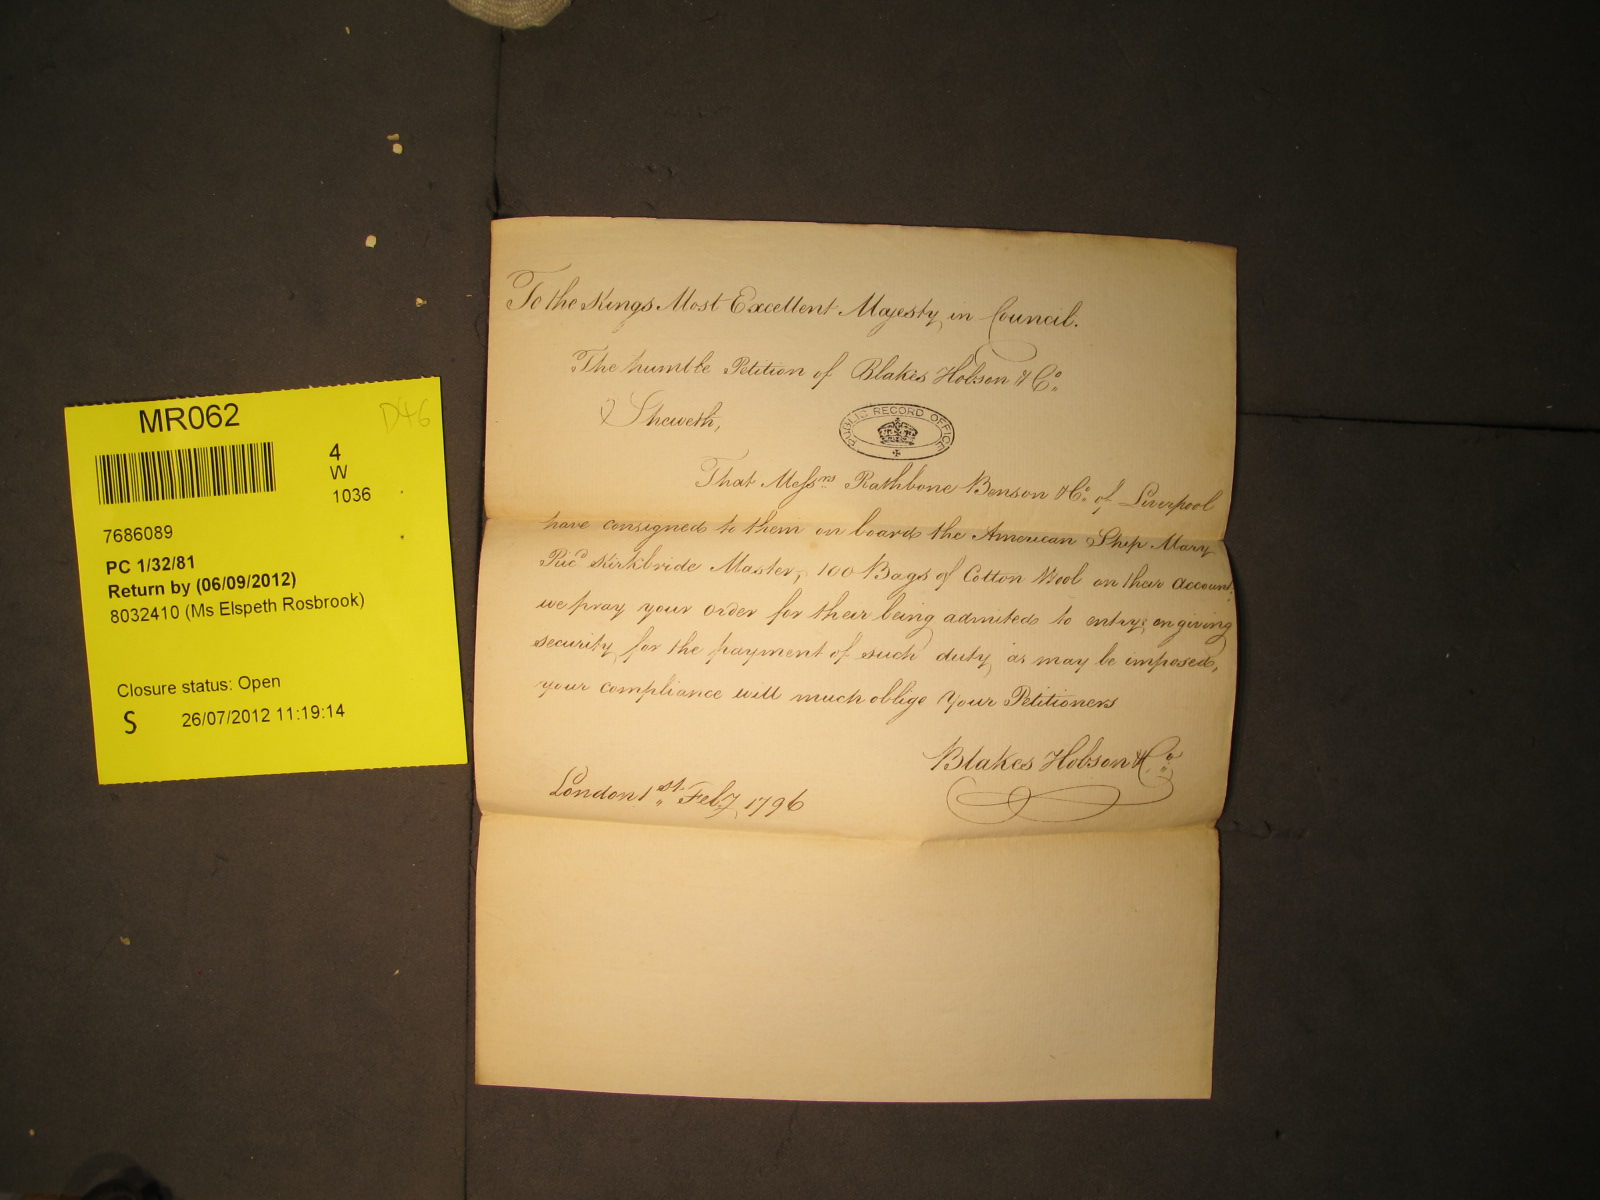 MR062
D46
4
W
1036
7686089
PC 1/32/81
Return by (06/09/2012)
8032410 (Ms Elspeth Rosbrook)
Closure status: Open
S 26/07/2012 11:19:14
To the Kings Most Excellent Majesty in Council.
The humble Petition of Blakes Hobson & Co.
Sheweth,
PUBLIC RECORD OFFICE
That Messrs Rathbone Benson & Co. of Liverpool
have consigned to them on board the American Ship Mary
Kirkbride Master, 100 Bags of Cotton Wool on their account,
we pray your order for their being admited to entry; on giving
security for the payment of such duty as may be imposed,
your compliance will much oblige Your Petitioners
Blakes Hobson & Co.
London 1st. Feby 1796